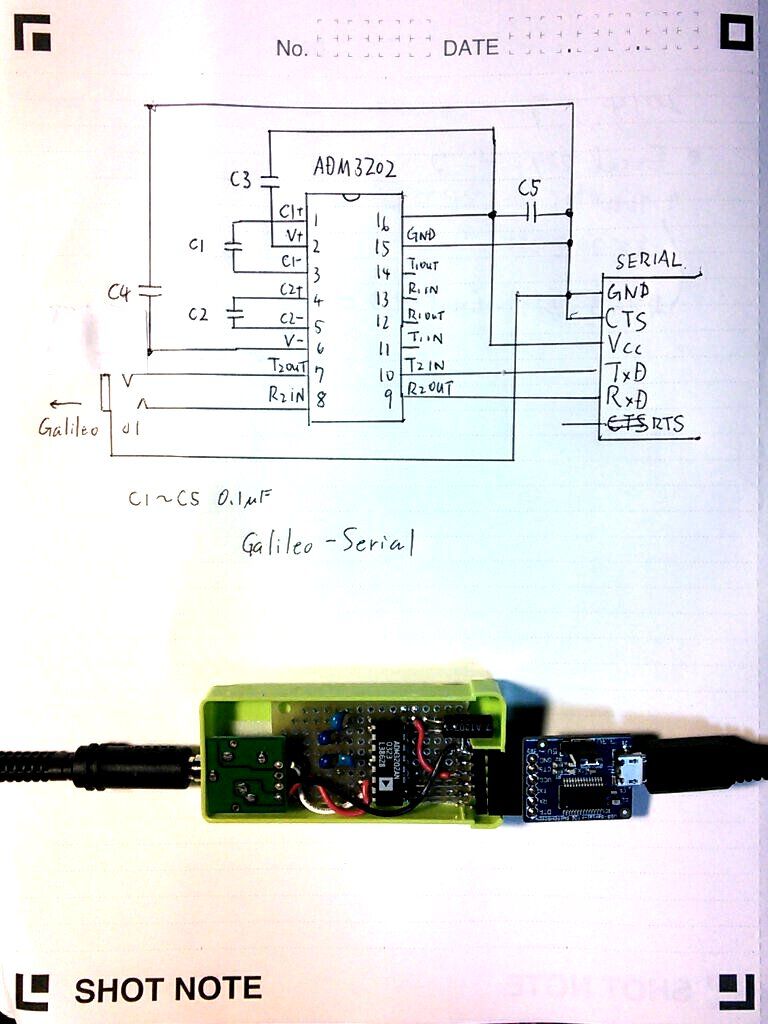 No. DATE
ADM3202
C3
C5
C1+ 1 16
V+ 2 15 GND
C1
C1- 3 14 T1OUT
SERIAL
C4
C2+ 4 13 R1IN
GND
C2
C2- 5 12 R1OUT
CTS
V- 6 11 T1IN
Vcc
T2OUT 7 10 T2IN
TxD
R2IN 8 9 R2OUT
RxD
Galileo J1
CTS RTS
C1~C5 0.1μF
Galileo-Serial
ADM3202AN
0323
SHOT NOTE